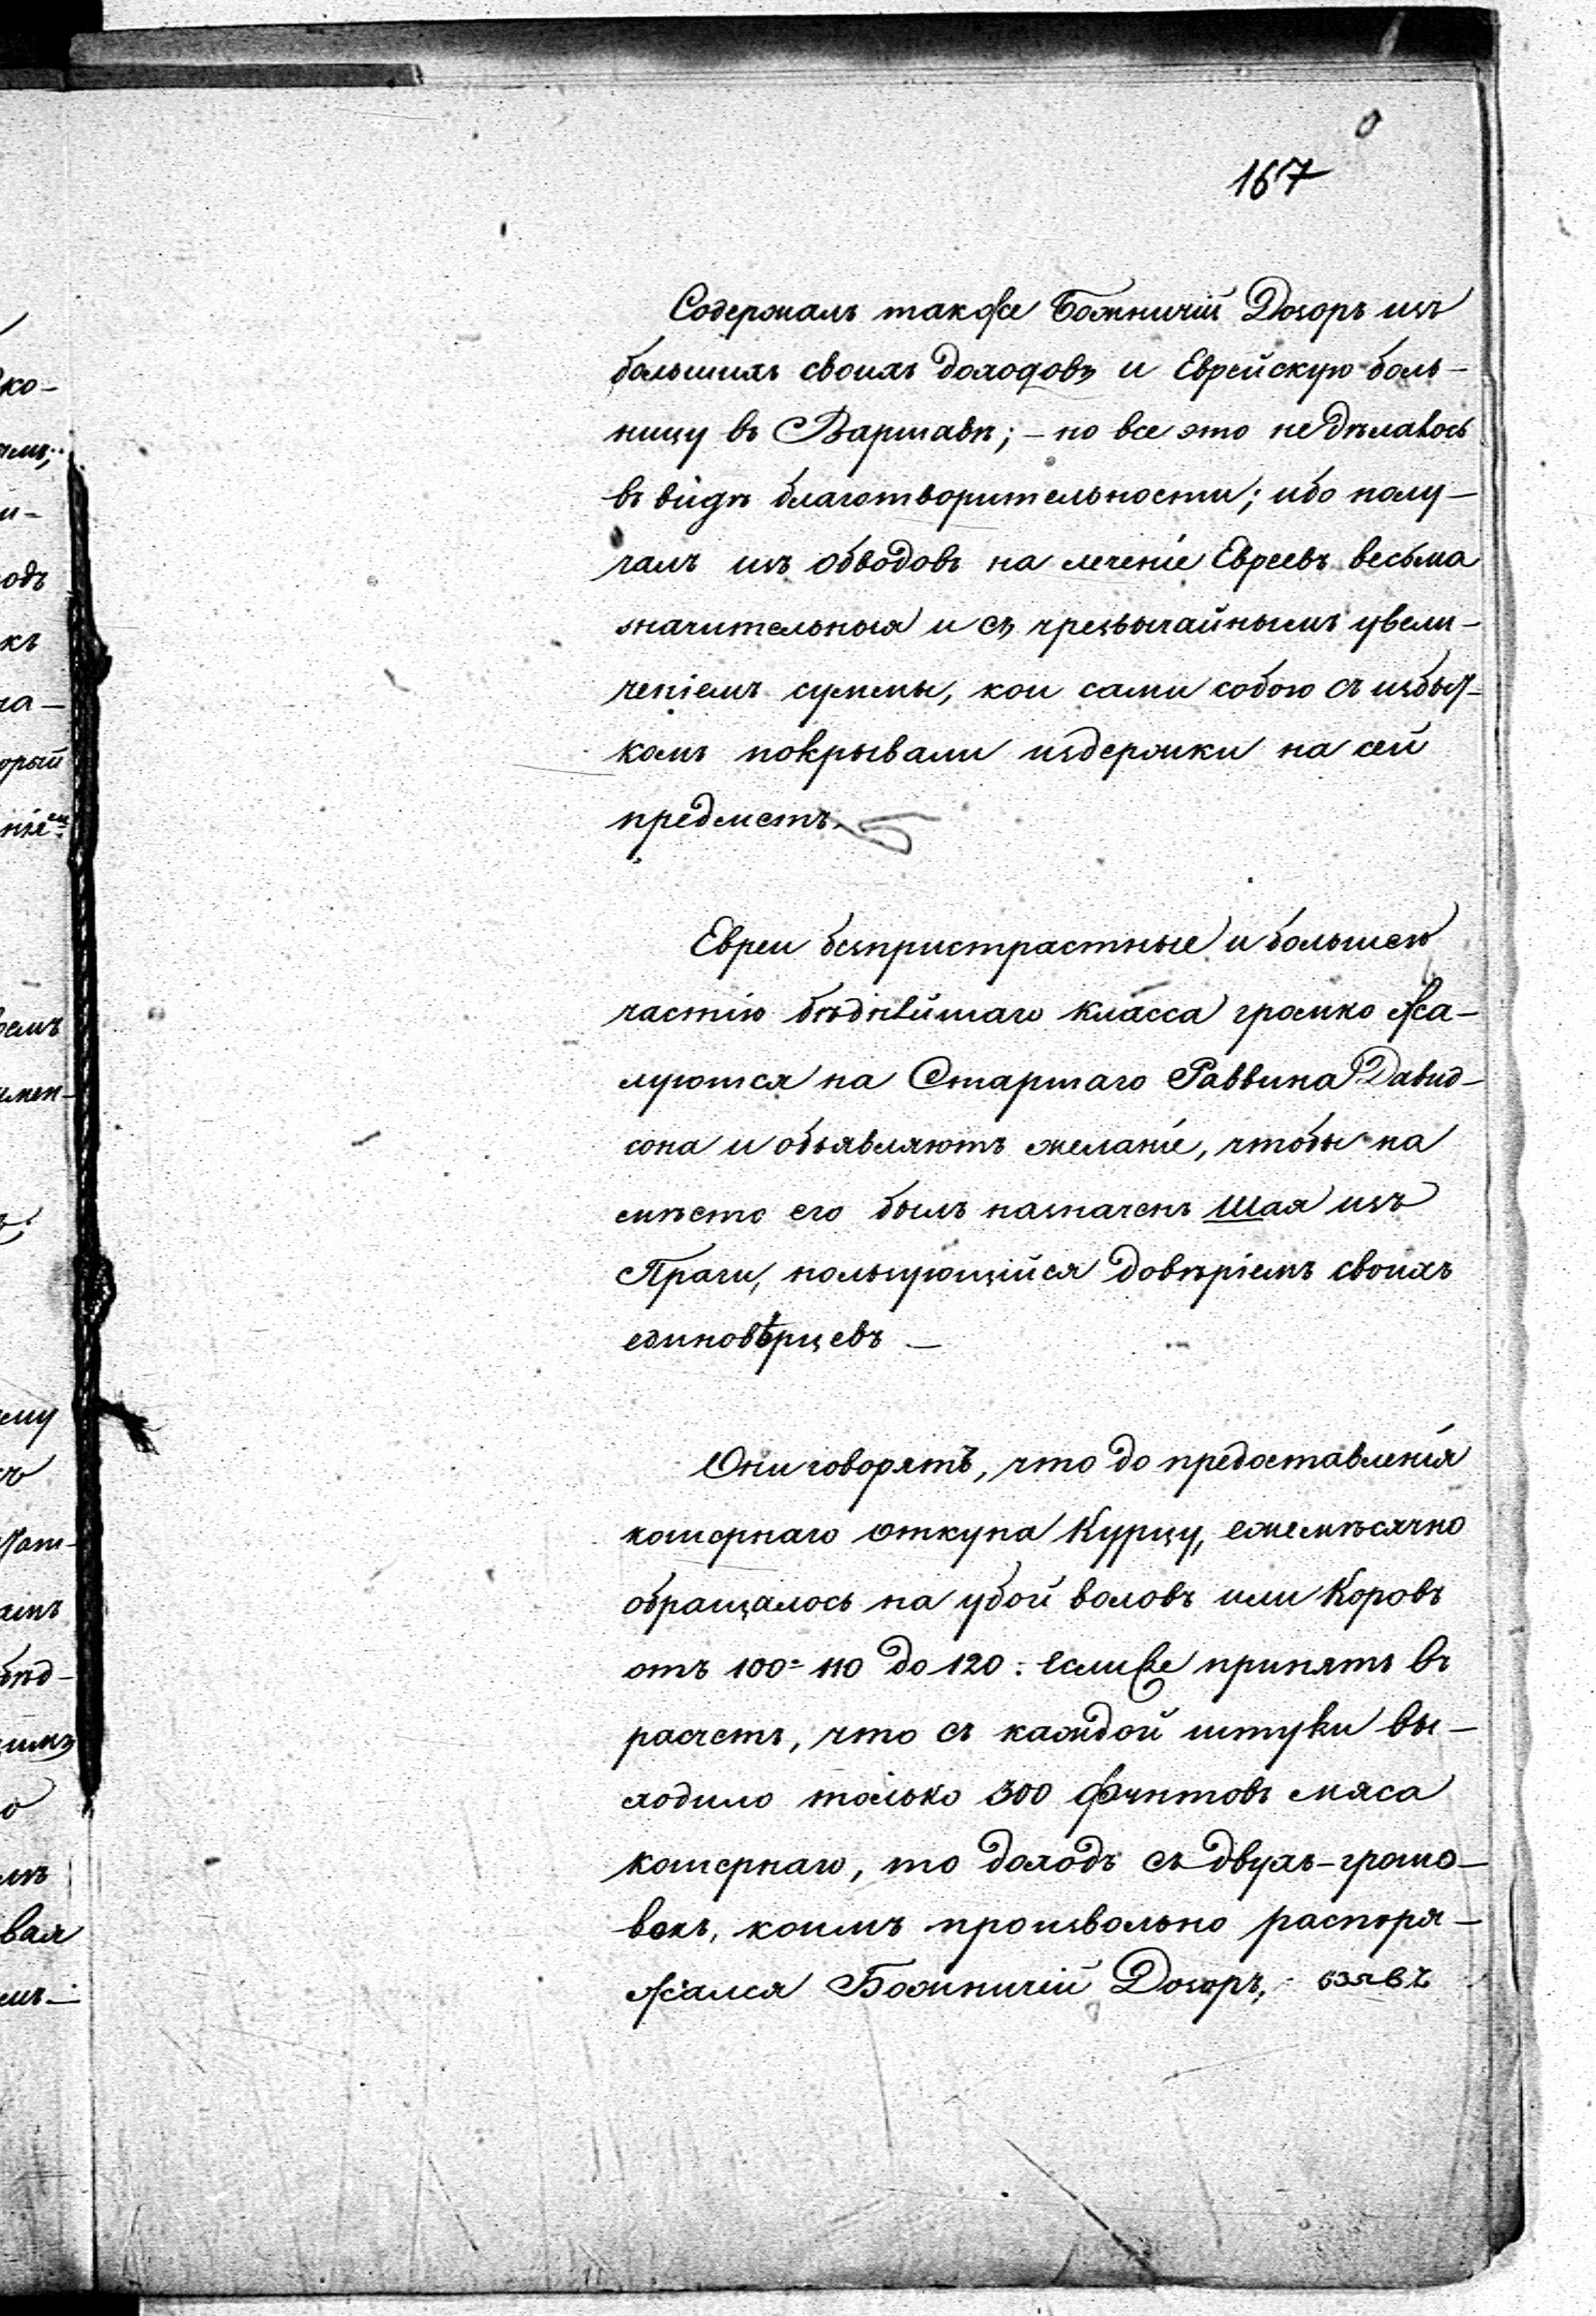 167
Содержалъ также Божничій Дозоръ изъ
большихъ своихъ доходовъ и Еврейскую боль-
ницу въ Варшавѣ; - но все это не дѣлалось
въ видѣ благотворительности; ибо полу-
чалъ изъ обводовъ на леченіе Евреевъ весьма
значительныя и съ чрезвычайнымъ увели-
ченіемъ суммы, кои сами собою съ избыт-
комъ покрывали издержки на сей
предметъ.
Евреи безпристрастные и большею
частію бѣднѣйшаго класса громко жа-
луются на Старшаго Раввина Давид-
сона и объявляютъ желаніе, чтобы на
мѣсто его былъ назначенъ Шая изъ
Праги, пользующійся довѣріемъ своихъ
единовѣрцевъ -
Они говорятъ, что до предоставленія
кошернаго откупа Курцу, ежемѣсячно
обращалось на убой воловъ или коровъ
отъ 100-110 до 120. Если же принять въ
расчетъ, что съ каждой штуки вы-
ходило только 300 фунтовъ мяса
кошернаго, то доходъ съ двухъ-грошо-
векъ, коимъ произвольно распоря-
жался Божничій Дозоръ, взявъ
ко-
и-
одъ
къ
на-
орый
мен-
ему
бѣд-
вая